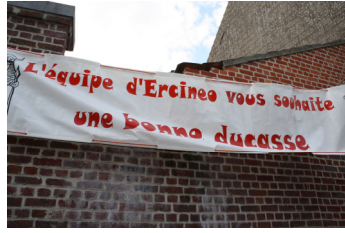 L'équipe d'Ercineo vous souhaite
une bonne ducasse